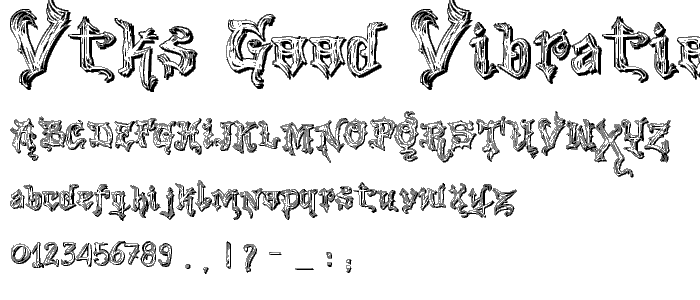 Vtks Good Vibratio
ABCDEFGHIJKLMNOPQRSTUVWXYZ
abcdefghijklmnopqrstuvwxyz
0123456789 . , ! ? - _ : ;